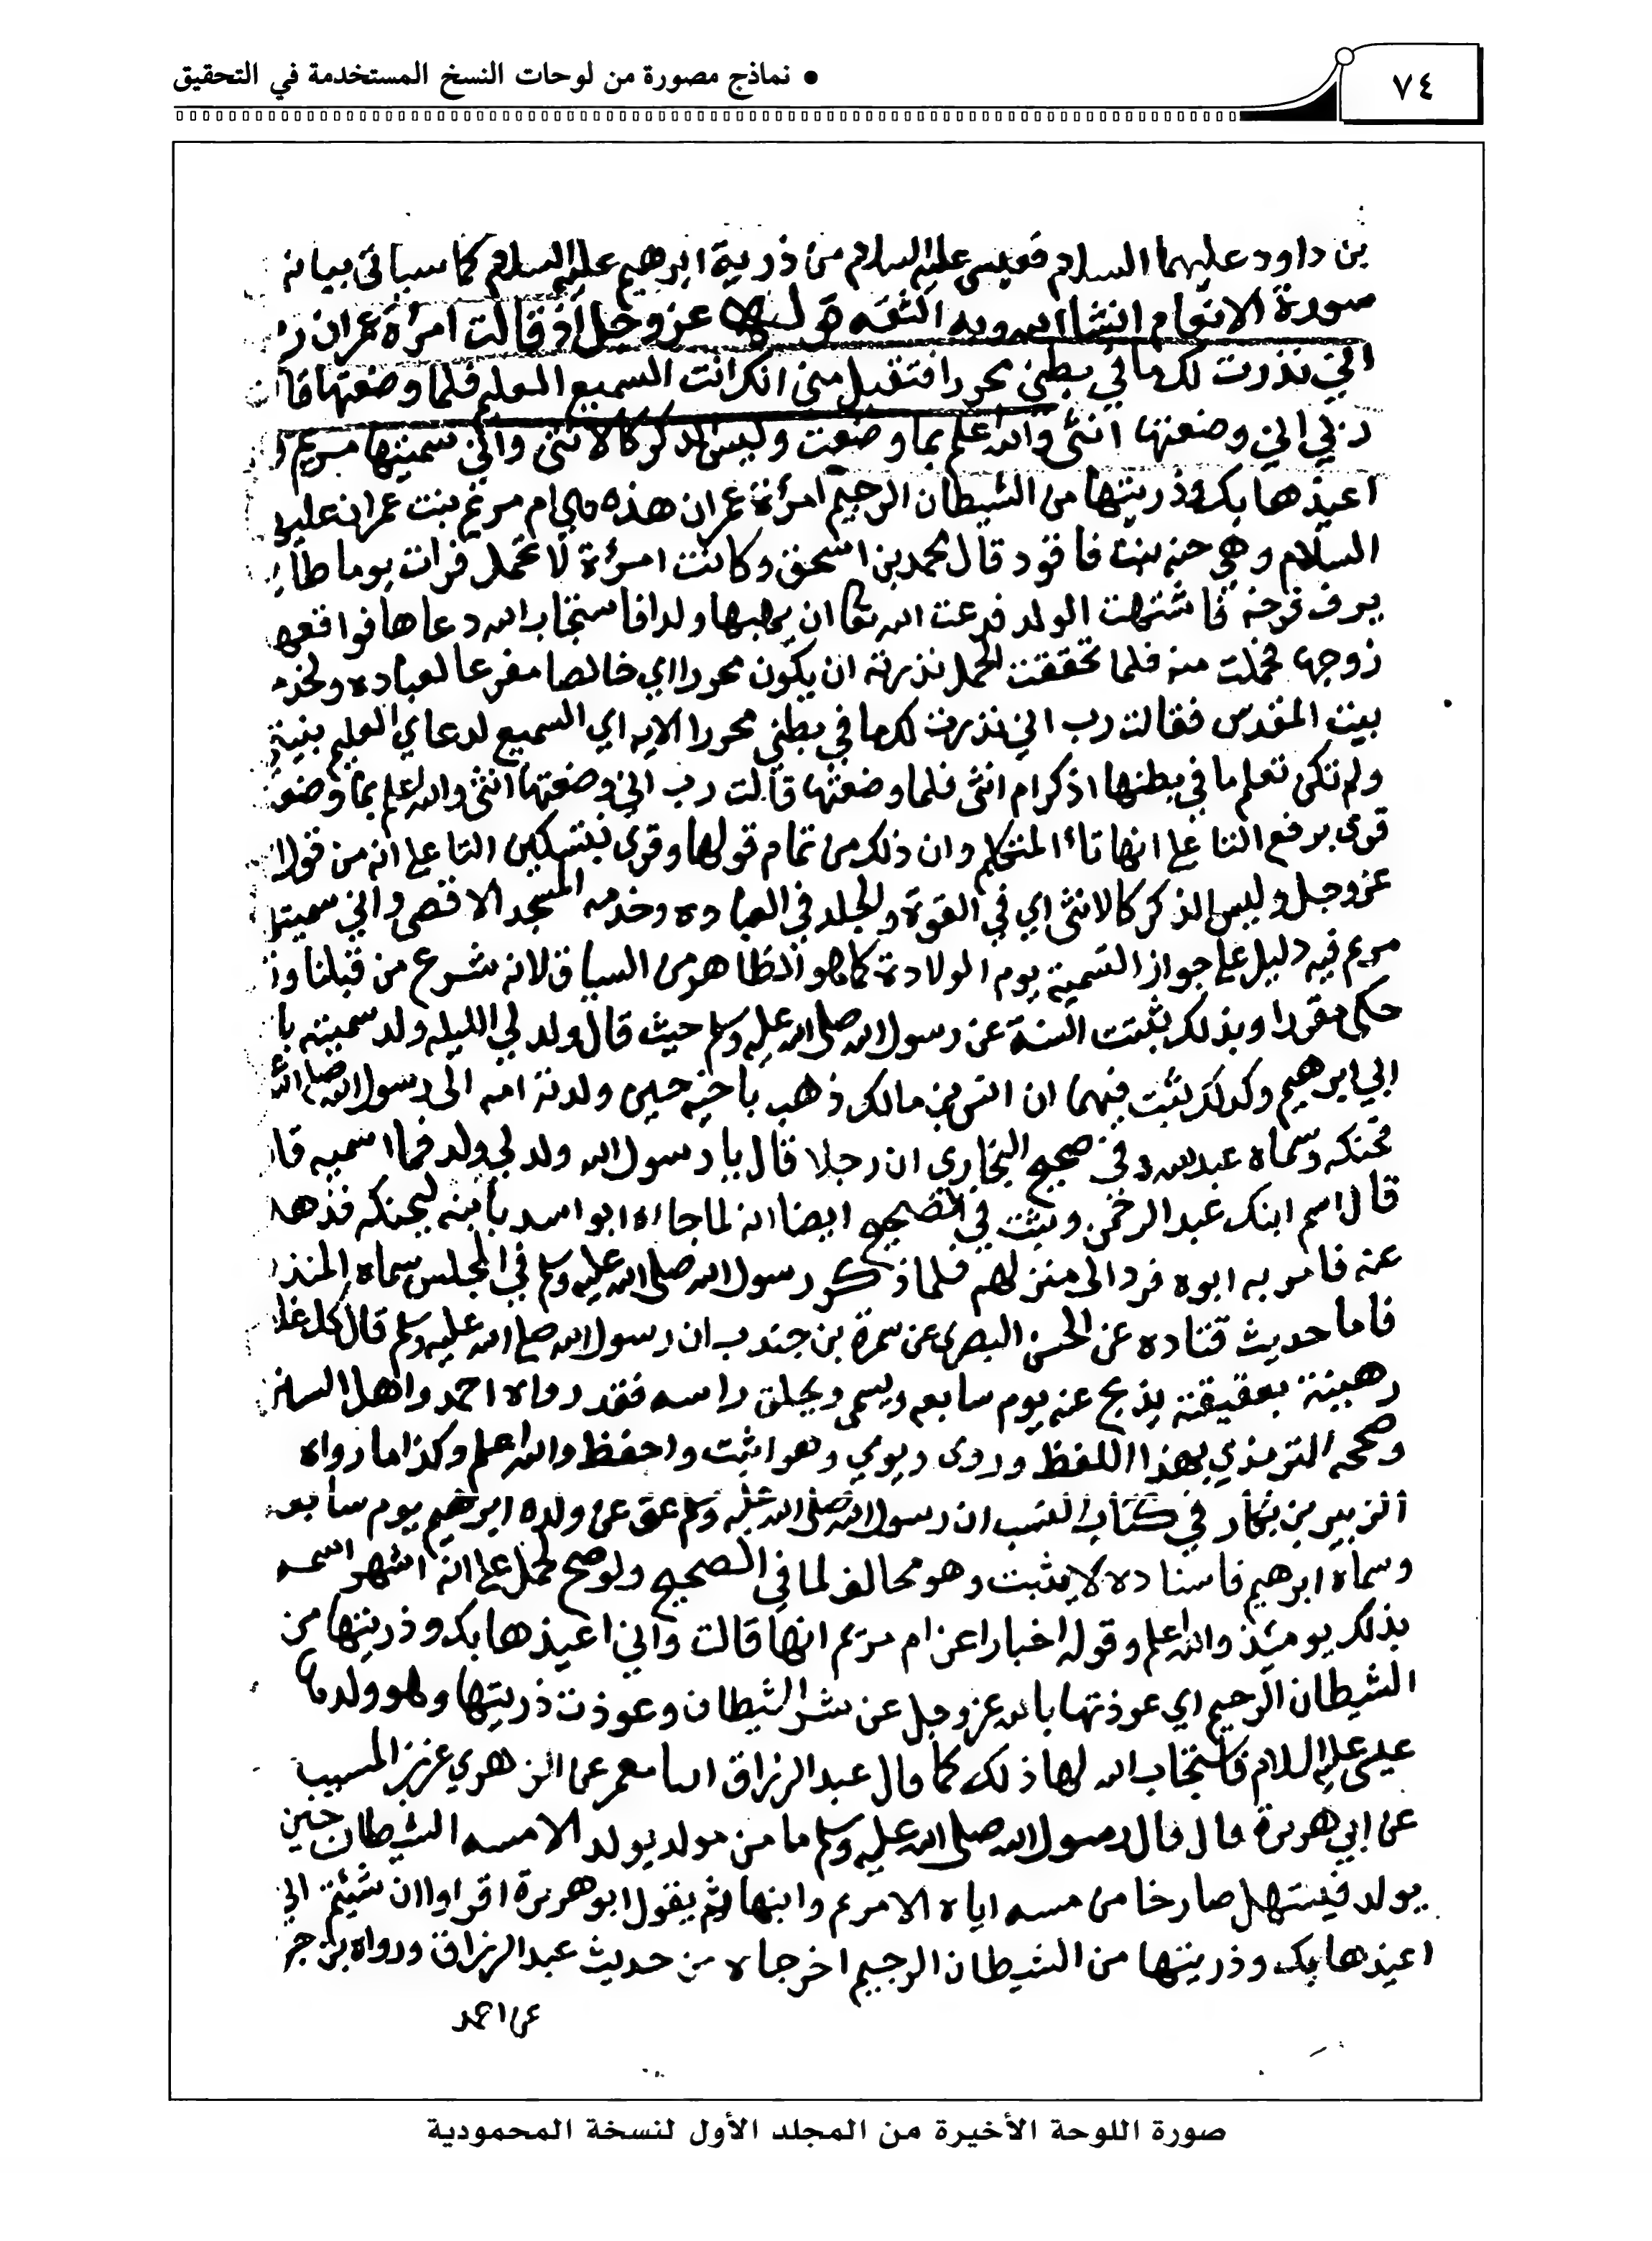 ٧٤
• نماذج مصورة من لوحات النسخ المستخدمة في التحقيق
بن داود عليهما السلام فعيسى عليه السلام من ذرية ابرهيم عليه السلام كما سياتى بيانه
سورة الانعام انشا الله وبه الثقه قوله عز وجل اذ قالت امرأة عمران ر
اني نذرت لك ما في بطني محررا فتقبل مني انك انت السميع العليم فلما وضعتها قا
رب اني وضعتها انثى والله اعلم بما وضعت وليس الذكر كالانثى واني سميتها مريم و
اعيذها بك وذريتها من الشيطان الرجيم امرأة عمران هذه هي ام مريم بنت عمران عليه
السلام وهي حنه بنت فاقود قال محمد بن اسحق وكانت امرأة لا تحمل فرات يوما طا
يزف فرخه فاشتهت الولد فدعت الله تعا ان يهبها ولدا فاستجاب الله دعاها فواقعه
زوجها فحملت منه فلما تحققت الحمل نذرته ان يكون محررا اي خالصا مفرعا لعباده ولخد
بيت المقدس فقالت رب اني نذرت لك ما في بطني محررا الايه اي السميع لدعاي العليم بنيتي
ولم تكن تعلم ما في بطنها اذكر ام انثى فلما وضعتها قالت رب اني وضعتها انثى والله اعلم بما وضع
قرى برفع التا على انها تاء المتكلم وان ذلك من تمام قولها وقرى بتسكين التا على انه من قول ا
عز وجل وليس الذكر كالانثى اي في القوة والجلد في العباده وخدمه المسجد الاقصى واني سميته
مريم فيه دليل على جواز التسمية يوم الولادة كما هو الظاهر من السياق لانه شرع من قبلنا و
حكى مقررا وبذلك ثبتت السنة عن رسول الله صلى الله عليه وسلم حيث قال ولد لي الليله ولد سميته با
ابي ابرهيم وكذلك ثبت فيهما ان انس بن مالك ذهب باخيه حين ولدته امه الى رسول الله صلى الله
فحنكه وسماه عبدالله وفي صحيح البخاري ان رجلا قال يا رسول الله ولد لي ولد فما اسميه قا
قال اسم ابنك عبد الرحمن وثبت في الصحيح ايضا انه لما جاءه ابو اسيد بابنه ليحنكه فذهل
عنه فامر به ابوه فرد الى منزلهم فلما ذكر رسول الله صلى الله عليه وسلم في المجلس سماه المنذر
فاما حديث قتاده عن الحسن البصرى عن سمرة بن جندب ان رسول الله صلى الله عليه وسلم قال كل غلا
رهينة بعقيقته يذبح عنه يوم سابعه ويسمى ويحلق راسه فقد رواه احمد واهل السنن
وصححه الترمذي بهذا اللفظ وروى ويدمي وهو اثبت واحفظ والله اعلم وكذا ما رواه
الزبير بن بكار في كتاب النسب ان رسول الله صلى الله عليه وسلم عق عن ولده ابرهيم يوم سابعه
وسماه ابرهيم فاسناده لا يثبت وهو مخالف لما في الصحيح ولو صح لحمل على انه اشهر اسمه
بذلك يومئذ والله اعلم وقوله اخبارا عن ام مريم انها قالت واني اعيذها بك وذريتها من
الشيطان الرجيم اي عوذتها بالله عز وجل من شر الشيطان وعوذت ذريتها وهو ولدها
عيسى عليه السلام فاستجاب الله لها ذلك كما قال عبد الرزاق انبا معمر عن الزهري عن بن المسيب
عن ابي هريرة قال قال رسول الله صلى الله عليه وسلم ما من مولد يولد الا مسه الشيطان حين
يولد فيستهل صارخا من مسه اياه الا مريم وابنها ثم يقول ابو هريرة اقراوا ان شئتم اني
اعيذها بك وذريتها من الشيطان الرجيم اخرجاه من حديث عبد الرزاق ورواه بن جر
عن احمد
صورة اللوحة الأخيرة من المجلد الأول لنسخة المحمودية